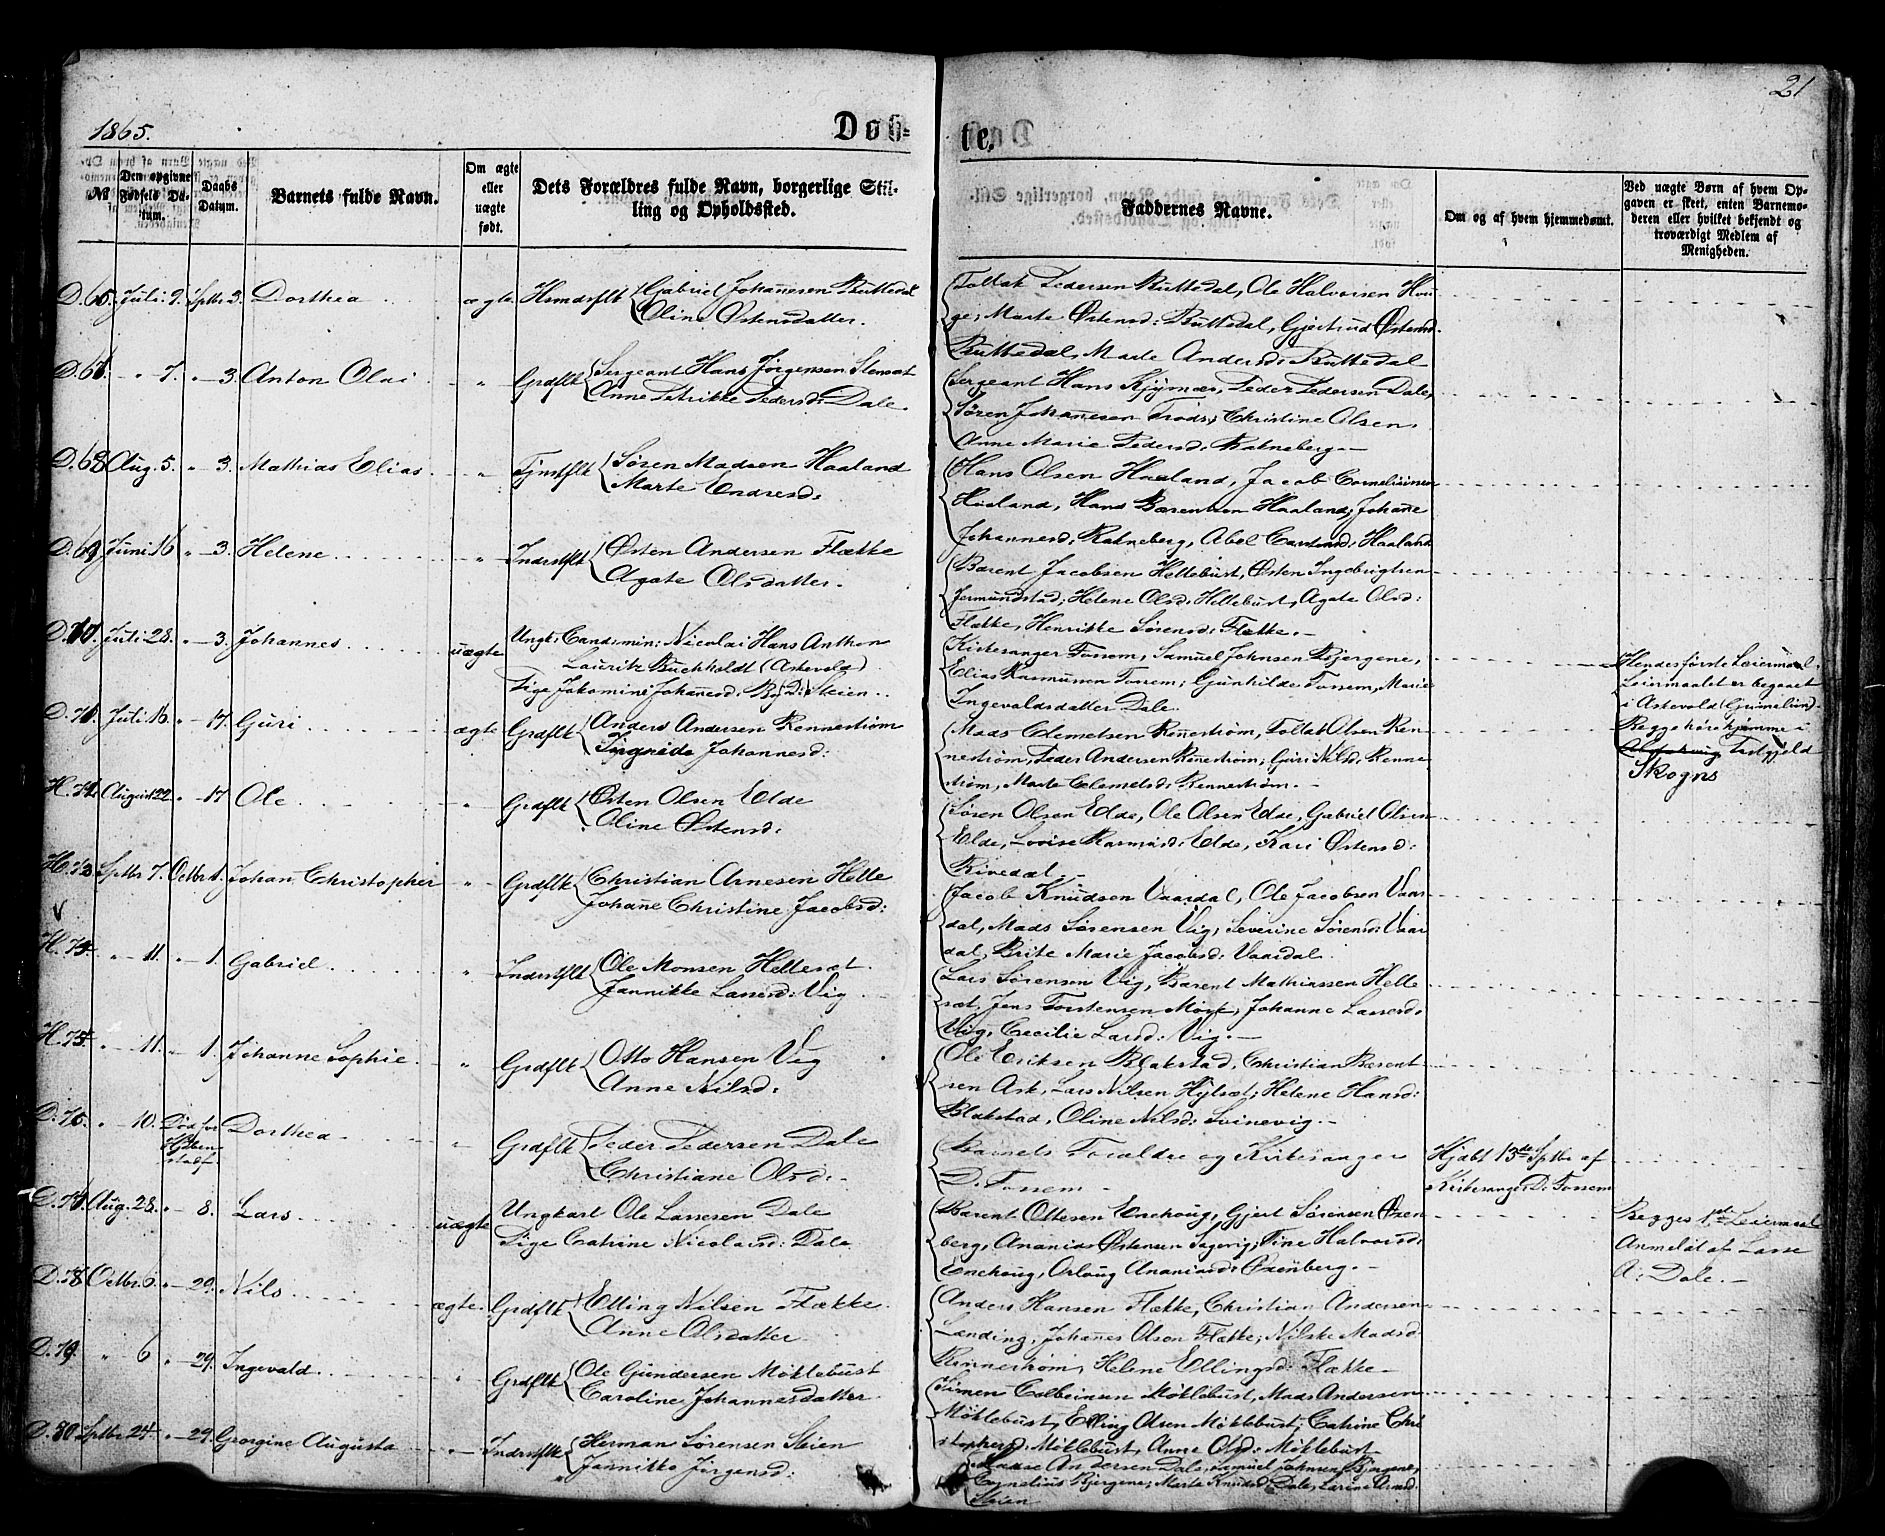 21
1865.
Døb-
te.
№
Den opgivne Fødsels Datum.
Daabs Datum.
Barnets fulde Navn.
Om ægte eller uægte født.
Dets Forældres fulde Navn, borgerlige Stilling og Opholdssted.
Faddernes Navne.
Om og af hvem hjemmedøbt.
Ved uægte Børn af hvem Opgaven er skeet, enten Barnemoderen eller hvilket bekjendt og troværdigt Medlem af Menigheden.
D. 65. Juli 9. Sptbr 3. Dorthea ægte Gabriel Johannesen Buttedal
Oline Østensdatter.
Pedersen Buttedal, Ole Halvorsen Hou-
ge; Marte Østensd: Buttedal, Gjertrud Østensd:
Buttedal, Marte Andersd: Buttedal
D. 66. " 7. " 3. Anton Olai " Grdflk Sergeant Hans Jørgensen Stensæt
Anne Petrikke Pedersd: Dale.
Sergeant Hans Peder Pedersen Dale,
Søren Johannesen Christine Olsen,
Anne Marie Pedersd: Rakneberg.
D. 68 Aug. 5. " 3. Mathias Elias " Søren Madsen Haaland
Marte Endresd:
Hans Olsen Haaland, Jacob Corneliussen
Haaland, Hans Berentsen Haaland; Johanne
Johannesd: Rakneberg, Abel Haaland
D. 69 Juni 16 " 3. Helene " Indrstflk Østen Andersen Flække
Agate Olsdatter.
Berent Jacobsen Hellebust, Østen Ingebrigtsen
Jermundstad; Helene Olsd: Hellebust, Agate Olsd:
Flække, Henrikke Sørensd: Flække.
D. 70. Juli 28. " 3. Johannes uægte Ungk: Cand: min: Nicolai Hans Anthon
Lauritz Buchholdt (Askevold)
Pige Jakomine Johannesd: Steien.
Kirkesanger Fossem, Samuel Johnsen Bjergene,
Elias Rasmussen Fossem; Gunhilde Fossem, Marie
Ingevaldsdatter Dale.
Hendes første Leiermaal.
Leiermaalet er begaaet
i Askevold
Begge høre hjemme i
Præstgjeld
Skogns
D. 71. Juli 16. " 17. Guri ægte Grdflk Anders Andersen Rennestrøm
Johannesd:
Mads Clemetsen Rennestrøm, Follak Olsen Ren-
nestrøm, Peder Andersen Rennestrøm; Guri Nilsd: Renne-
strøm, Marte Clemetsd: Rennestrøm.
H. 72 August 22 " 17 Ole " Grdflk Østen Olsen Elde
Oline Østensd:
Søren Olsen Elde, Ole Olsen Elde, Gabriel Olsen
Elde, Lovise Rasmusd: Elde, Kari Østensd:
Rivedal.
H. 73 Sptbr 7. Octbr 1. Johan Christopher " Grdflk Christian Arnesen Helle
Johanne Christine Jacobsd:
Jacob Knudsen Vaardal, Ole Jacobsen Vaar-
dal, Mads Sørensen Vig; Severine Sørensd: Vaar-
dal, Brite Marie Jacobsd: Vaardal.
H. 74 " 11. " 1. Gabriel " Indrstflk Ole Monsen Hellesæt.
Jannikke Lassesd: Vig
Lars Sørensen Vig, Berent Mathiassen Helle-
sæt, Jens Torstensen Mork, Johanne Lassesd:
Vig, Cecilie Larsd: Vig.
H. 75. " 11. " 1. Johanne Sophie " Grdflk Otto Hansen Vig
Anne Nilsd:
Ole Eriksen Blakstad, Christian Berent-
sen Ask, Lars Nilsen Hylsæt; Helene Hansd:
Blakstad, Oline Nilsd: Svinevig.
D. 76. " 10. Død før Dorthea " Grdflk Peder Pedersen Dale
Christiane Olsd:
Barnets Forældre og Kirkesanger
D. Fossem
Hjdbt 13de Sptbr af
Kirkesanger D: Fossem
D. 77 Aug. 28. " 8. Lars uægte Ungkarl Ole Lassesen Dale
Pige Catrine Nicolaisd: Dale
Berent Ottesen Enehoug, Gjert Sørensen Øxen-
berg, Ananias Østensen Sagevig; Tine Halvorsd:
Enehoug, Orloug Ananiasd: Øxenberg.
Begges 1ste Leiermaal
Anmeldt af Lasse
A: Dale.
D. 78 Octbr. 6. " 29. Nils ægte. Grdflk Elling Nilsen Flække.
Anne Olsdatter
Anders Hansen Flække, Christian Andersen
Lending, Johannes Olsen Flække; Nilske Madsd:
Rennestrøm, Helene Ellingsd: Flække
D. 79. " 6 " 29. Ingevald " Grdflk Ole Gundersen Møklebust
Caroline Johannesdatter
Simen Colbeinsen Møklebust, Mads Andersen
Møklebust, Elling Olsen Møklebust; Catrine Chri-
stophersd: Møklebust, Anne Olsd: Møklebust
D. 80 Sptbr 24. " 29. Georgine Augusta " Indrstflk Herman Sørensen Steien
Jannikke Jørgensd:
Andersen Dale, Samuel Johnsen Bjergene,
Cornelius Bjergene; Marte Knudsd: Dale,
Steien